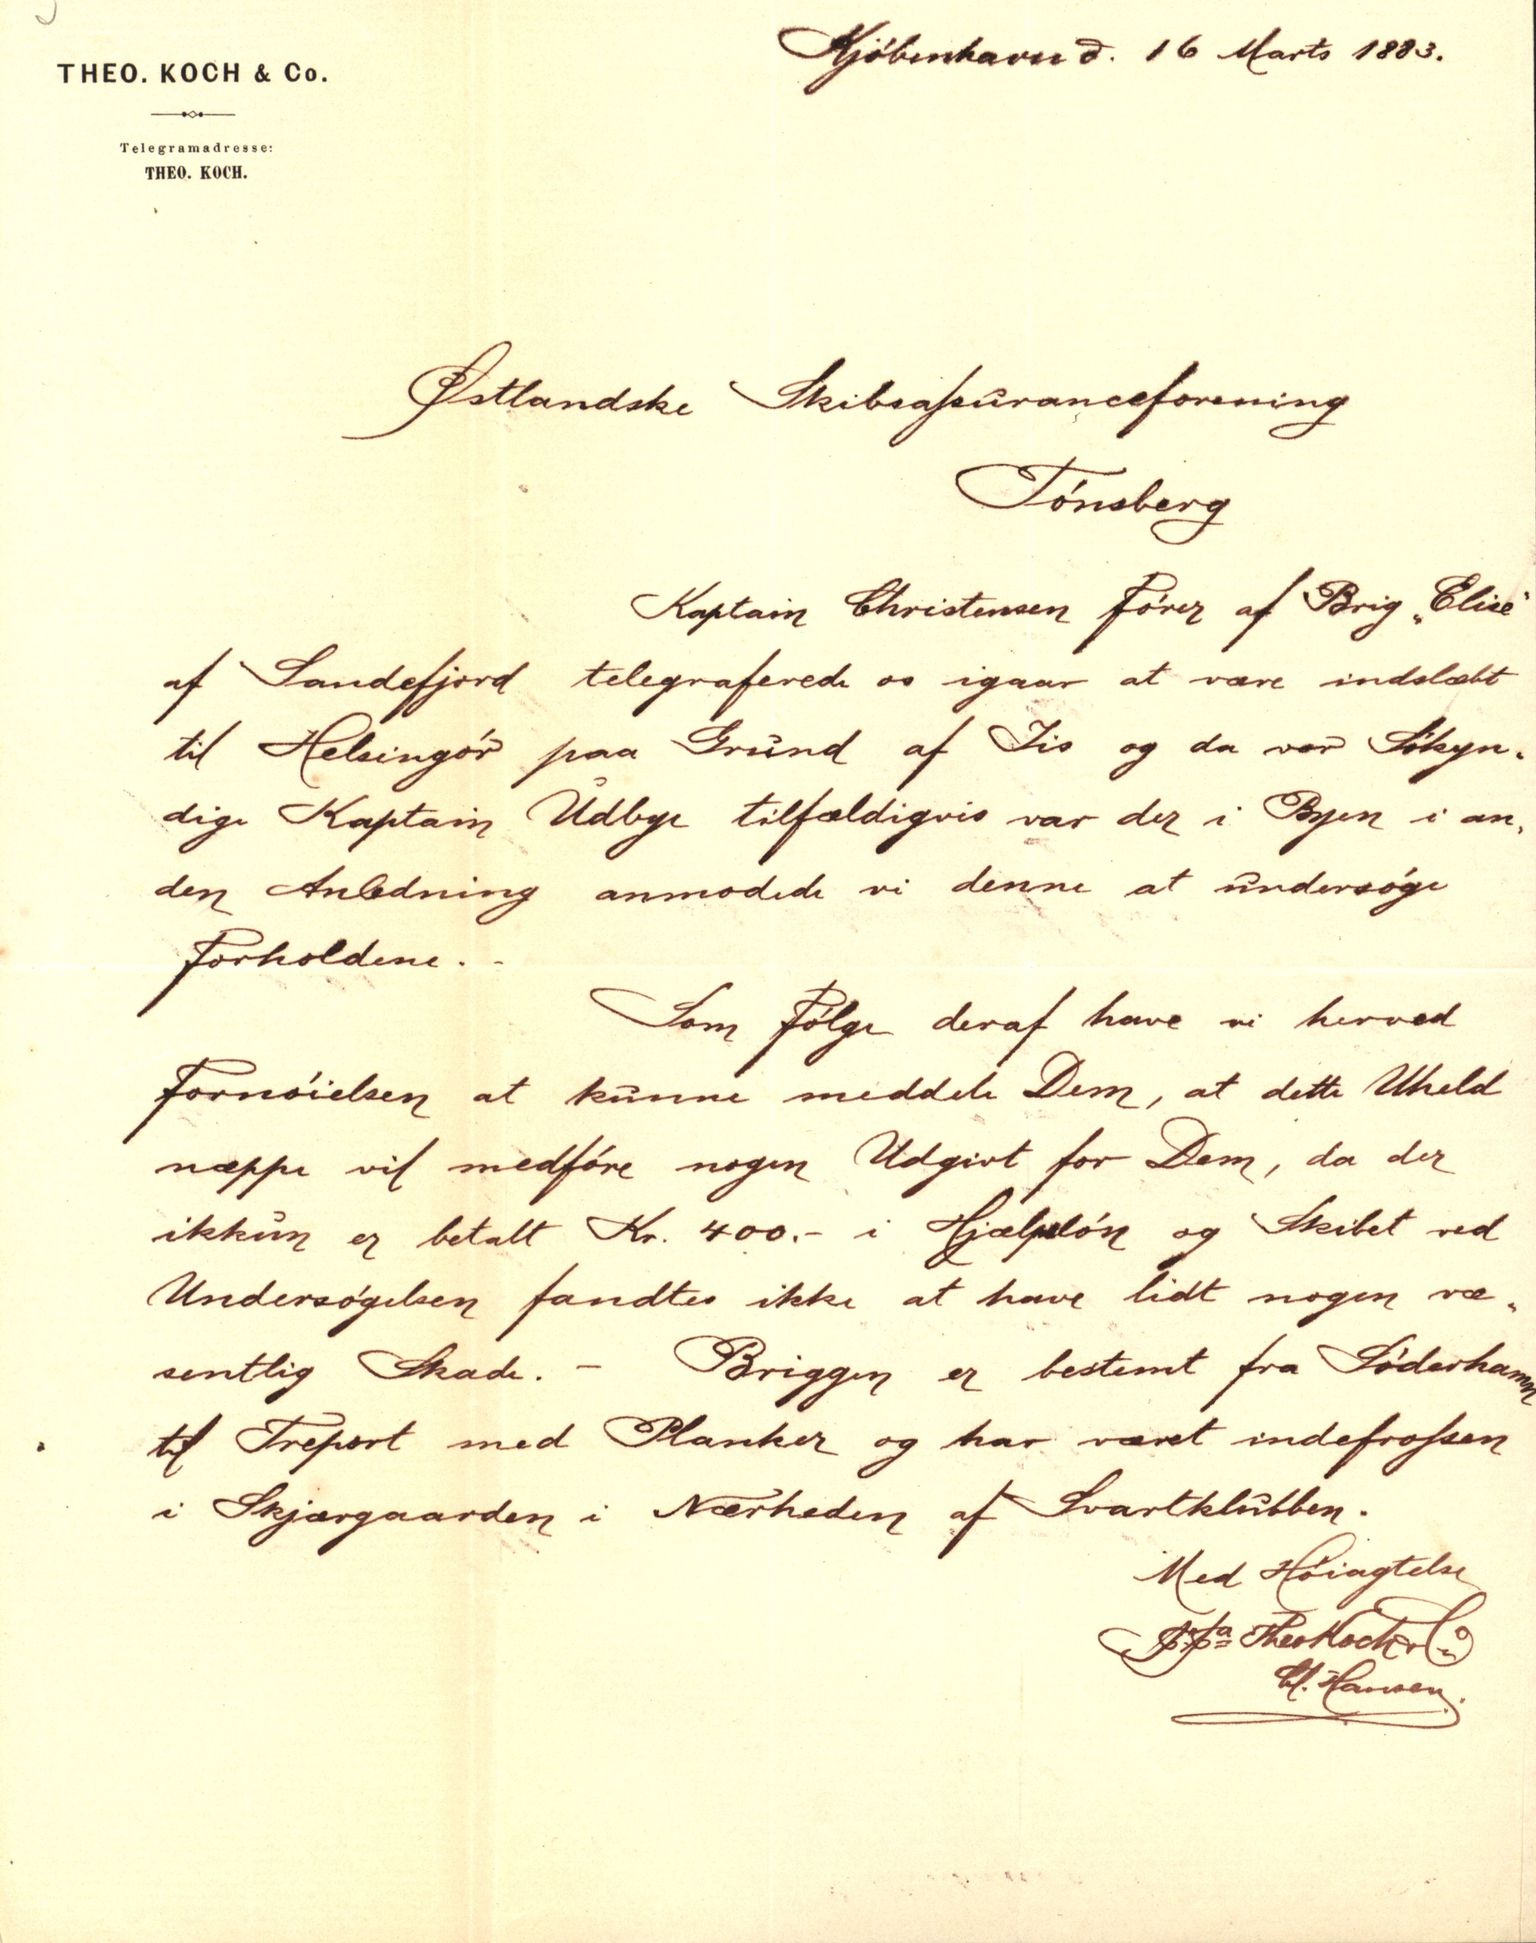 THEO. KOCH & Co.
Telegramadresse:
THEO. KOCH.
Kjöbenhavn d. 16 Marts 1883.
Østlandske Skibsassuranceforening
Tönsberg
Kaptain Christensen Förer af Brig „Elise"
af Sandefjord telegraferede os igaar at være indslæbt
til Helsingör paa Grund af Iis og da vor Sökyn-
dige Kaptain Udbye tilfældigvis var der i Byen i an-
den Anledning anmodede vi denne at undersöge
Forholdene. -
Som Fölge deraf have vi herved
Fornöielsen at kunne meddele Dem, at dette Uheld
næppe vil medföre nogen Udgivt for Dem, da der
ikkun er betalt Kr. 400.- i Hjælplön og Skibet ved
Undersögelsen fandtes ikke at have lidt nogen væ-
sentlig Skade. - Briggen er bestemt fra Söderhamn
til Treport med Planker og har været indefrossen
i Skjærgaarden i Nærheden af Svartklubben.
Med Höiagtelse
pr. pa Theo Koch & Co
Hansen.